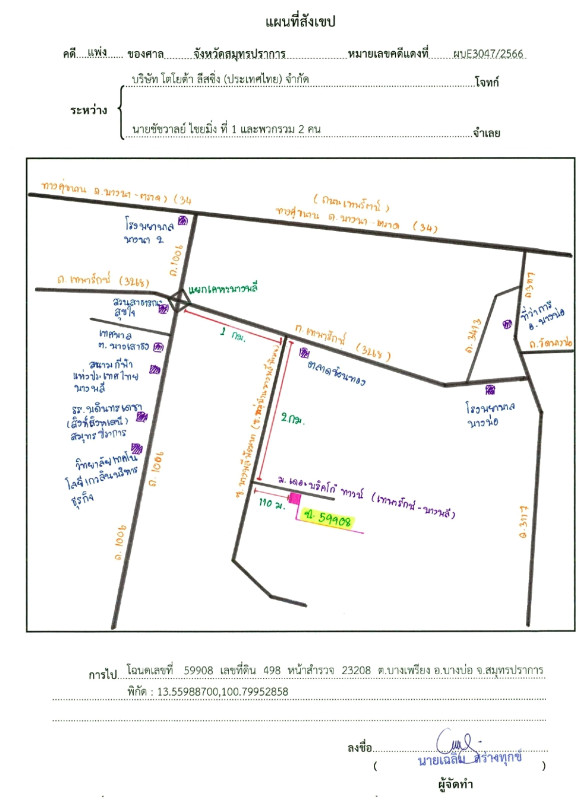 แผนที่สังเขป
คดี แพ่ง ของศาล จังหวัดสมุทรปราการ หมายเลขคดีแดงที่ ผบE3047/2566
บริษัท โตโยต้า ลีสซิ่ง (ประเทศไทย) จำกัด โจทก์
ระหว่าง
นายชัชวาลย์ ไขยมิ่ง ที่ 1 และพวกรวม 2 คน จำเลย
ทางคู่ขนาน ถ.บางนา-ตราด (34
(ถนนเทพรัตน์)
ทางคู่ขนาน ถ.บางนา-ตราด (34)
โรงพยาบาล
บางนา 2
ถ.1006
ถ.เทพารักษ์ (3268)
แยกเคหะบางพลี
สวนสาธารณะ
สุขใจ
1 กม.
ถ.เทพารักษ์ (3268)
เทศบาล
ต.บางเสาธง
สนามกีฬา
แห่งประเทศไทย
บางพลี
ตลาดซ้อนทอง
ถ.3413
ถ.317
ที่ว่าการ
อ.บางบ่อ
ถ.รัตนราช
โรงพยาบาล
บางบ่อ
รร.บดินทรเดชา
(สิงห์ สิงหเสนี)
สมุทรปราการ
2 กม.
วิทยาลัยเทคโน
โลยีกาญจนบริหาร
ธุรกิจ
ถ.1006
ถ.1006
ม.เดอะบริคโก้ ทาวน์ (เทพารักษ์-บางพลี)
110 ม.
ฉ.59908
ถ.317
การไป โฉนดเลขที่ 59908 เลขที่ดิน 498 หน้าสำรวจ 23208 ต.บางเพรียง อ.บางบ่อ จ.สมุทรปราการ
พิกัด : 13.55988700,100.79952858
ลงชื่อ
( นายเฉลิม สร่างทุกข์ )
ผู้จัดทำ